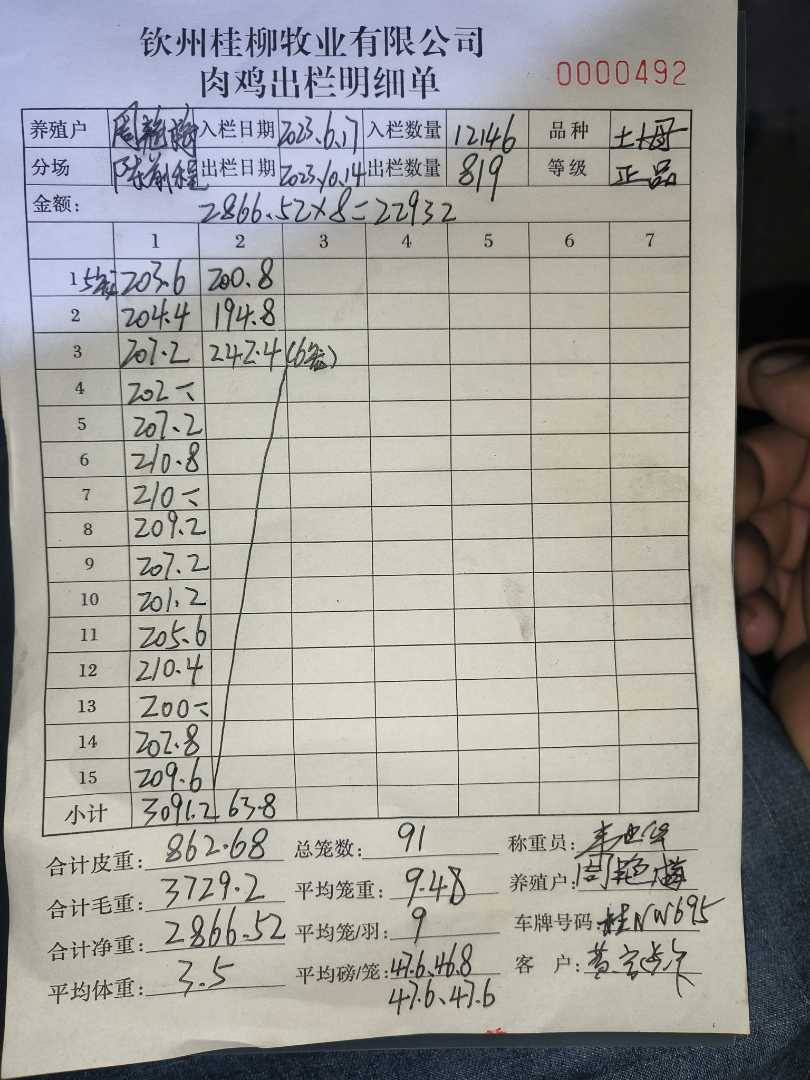 钦州桂柳牧业有限公司
肉鸡出栏明细单 0000492
养殖户 周艳梅 入栏日期 2023.6.17 入栏数量 12146 品种 土大母
分场 陈前程 出栏日期 2023.10.14 出栏数量 819 等级 正品
金额: 2866.52×8=22932
1 2 3 4 5 6 7
1 5笼 203.6 200.8
2 204.4 194.8
3 207.2 242.4 (6笼)
4 202
5 207.2
6 210.8
7 210
8 209.2
9 207.2
10 201.2
11 205.6
12 210.4
13 200
14 202.8
15 209.6
小计 3091.2 63.8
合计皮重: 862.68 总笼数: 91 称重员:
合计毛重: 3729.2 平均笼重: 9.48 养殖户: 周艳梅
合计净重: 2866.52 平均笼/羽: 9 车牌号码: 桂NW695
平均体重: 3.5 平均磅/笼: 47.6、46.8 客 户:
47.6、47.6